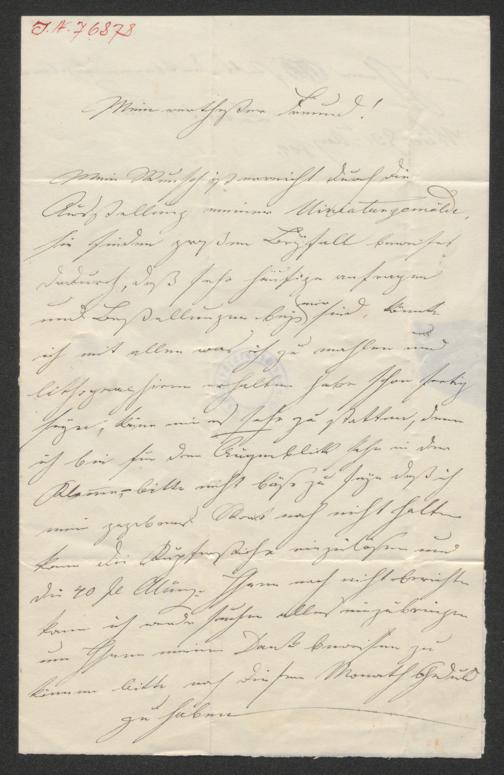 I.N. 76878
Mein werthester Freund!
Mein Wunsch ist erreicht durch die
Ausstellung meiner Miniaturgemälde,
sie finden großen Beyfall beweiset
dadurch, daß sehr häufige anfragen
und Bestellungen bey mir sind, könnte
ich mit allen was ich zu mahlen und
lithographieren erhalten habe schon fertig
seyn, käme mir es sehr zu statten, denn
ich bin für den Augenblick sehr in der
Klemme, bitte nicht böse zu seyn daß ich
mein gegebenes Wort noch nicht halten
kann die Kupferstiche einzulösen und
die 40 fl Münz. Ihnen noch nicht berichten
kann ich werde suchen alles einzubringen
um Ihnen meinen Dank beweisen zu
können bitte noch diesen Monath Geduld
zu haben